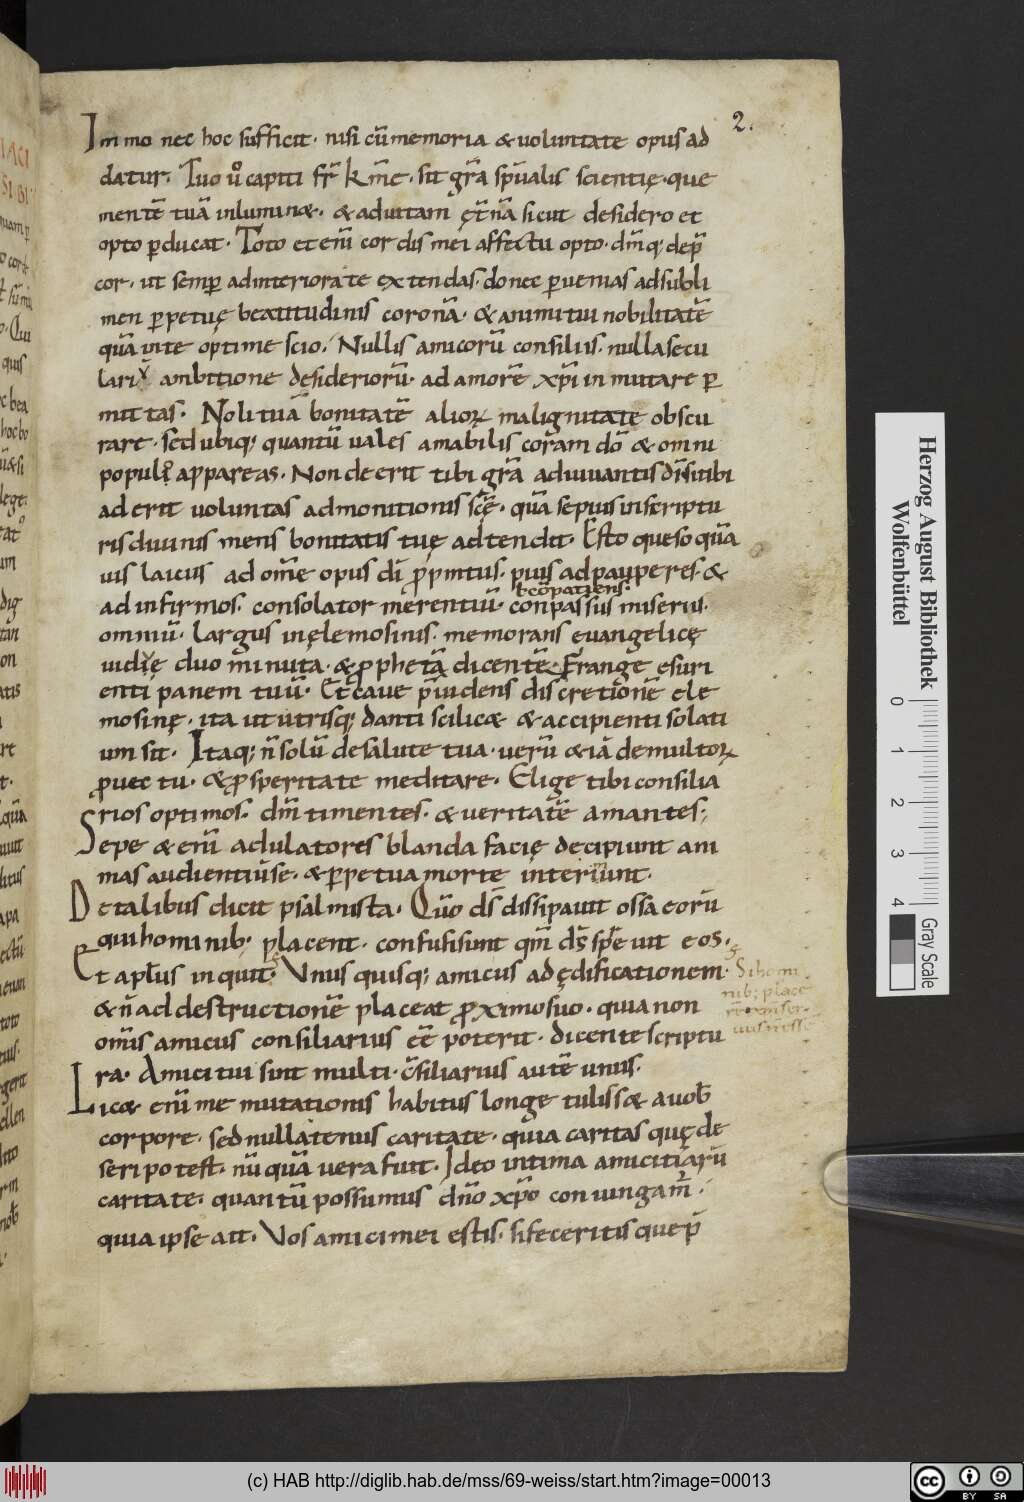 2.
Immo nec hoc sufficit. nisi cũ memoria & uoluntate opus ad
datur. Tuo ů capiti fr̃ kr̃me. sit gr̃a sp̃ualis scientię. que
mentẽ tuã inluminæ. & ad uitam ęt̃nã sicut desidero et
opto ꝑducat. Toto et em̃ cordis mei affectu opto. dm̃q; dep̃
cor. ut semꝑ ad interiora te extendas. donec ꝑuenias ad subli
men ꝑpetuę beatitudinis coronã. & animi tui nobilitatẽ
quã in te optime scio. Nullis amicorũ consiliis. nulla secu
lari ambitione desideriorũ. ad amorẽ xp̃i inmutare ꝑ
mittas. Noli tuã bonitatẽ alioꝝ malignitate obscu
rare. sed ubiq; quantũ uales amabilis coram dõ & omni
populo appareas. Non deerit tibi gr̃a adiuuantis dĩ si tibi
aderit uoluntas admonitionis scę̃. quã sepius in scriptu
ris diuinis mens bonitatis tuę adtendit. Esto queso quã
uis laicus ad om̃e opus dĩ p̃pmtus. pius ad pauperes. &
ł cõpatiens.
ad infirmos. consolator merentiũ. conpassus miseriis.
omniũ. largus in ęlemosinis. memorans euangelicę
uidię duo minuta. & ꝓphetã dicentẽ. Frange esuri
enti panem tuũ. Et caue p̃uidens discretionẽ ele
mosinę. ita ut utrisq; danti scilicæ & accipienti solati
um sit. Itaq; ñ solũ de salute tua. uerũ & iã de multoꝝ
ꝓuectu. & ꝓsperitate meditare. Elige tibi consilia
rios optimos. dm̃ timentes. & ueritatẽ amantes;
Sepe & em̃ adulatores blanda facię decipiunt ani
mas audientiũ se. & ꝑpetua morte interimunt.
De talibus dicit psalmista. Qũo d̃s dissipauit ossa eorũ
qui hominib; placent. confusi sunt qm̃ d̃s spreuit eos.
Et apłus inquit. Vnus quisq; amicus ad ędificationem.
& ñ ad destructionẽ placeat ꝓximo suo. quia non
Si homi
nib; place
rẽ xp̃i ser
uus ñ essẽ
om̃is amicus consiliarius eẽ poterit. dicente scriptu
ra. Amici tui sint multi. c̃siliarius autẽ unus.
Licæ em̃ me mutationis habitus longe tulissæ a uob̃
corpore. sed nullatenus caritate. quia caritas quę de
seri potest. nũ quã uera fuit. Ideo intima amicitiarũ
caritate. quantũ possumus dño xp̃o coniungam̃.
quia ipse ait. Vos amici mei estis. si feceritis que p̃
Herzog August Bibliothek
Wolfenbüttel
0 1 2 3 4
Gray Scale
(c) HAB http://diglib.hab.de/mss/69-weiss/start.htm?image=00013
cc BY SA